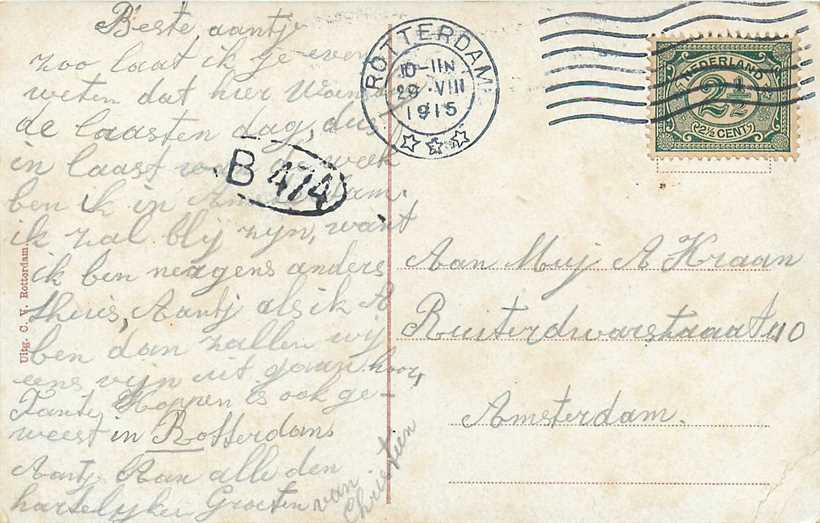 Beste, aantje
zoo laat ik je even
weten dat hier Woens
de laasten dag, dus
in laast van de week
ben ik in Amsterdam.
ik zal bly zyn, want
ik ben nergens anders
thuis, Aantj als ik A
ben dan zallen wij
eens vyn uit gaan hoor,
Tante Hoppen is ook ge-
weest in Rotterdam
Aantj Aan alle den
hartelyke Groeten van
Christien
B 474
Uitg. C. V. Rotterdam.
ROTTERDAM
10-11N
29 VIII
1915
NEDERLAND
2½
2½ CENT
Aan Mej A Kraan
Ruisterdwarstaaat 110
Amsterdam.